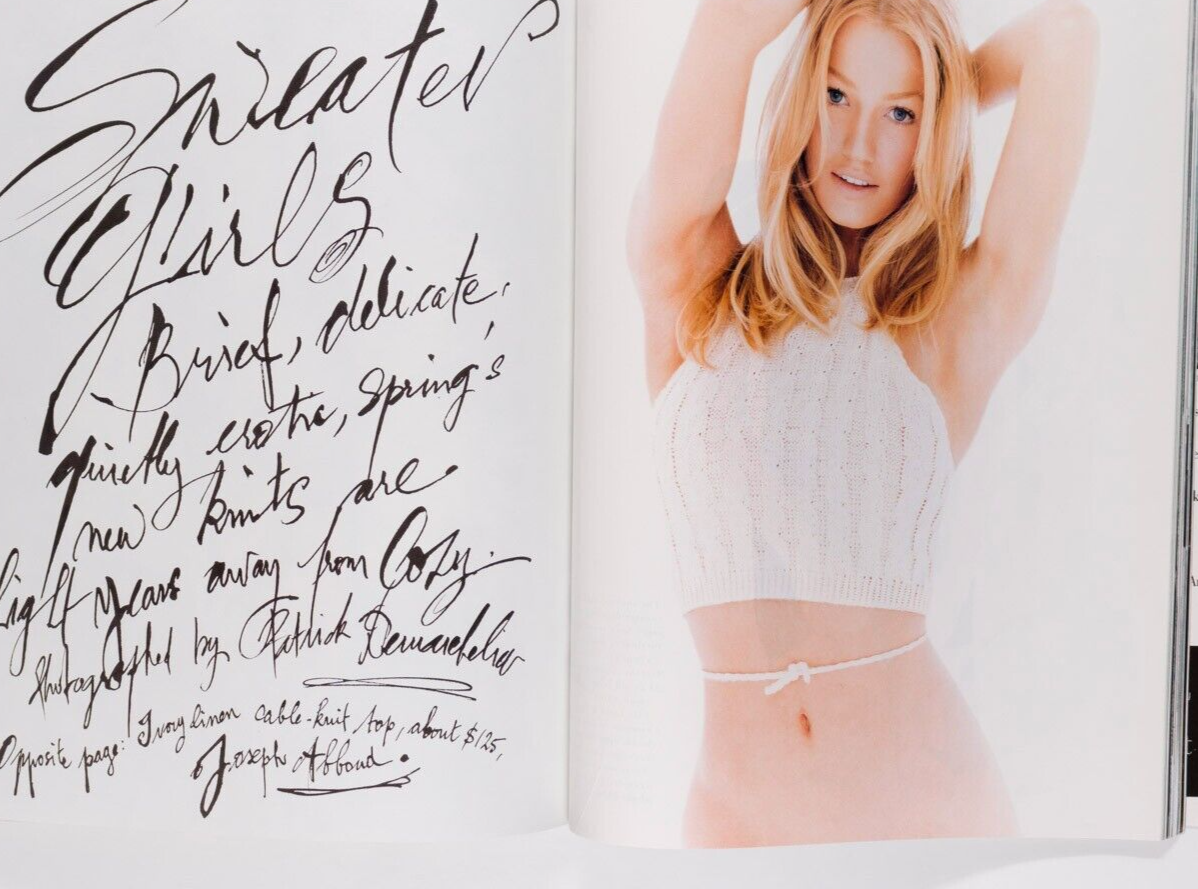 Sweater
Girls
Brief, delicate,
quietly erotic, Spring's
new knits are
light years away from Cozy.
Photographed by Patrick Demarchelier
Opposite page: Ivory linen cable-knit top, about $125,
Joseph Abboud.